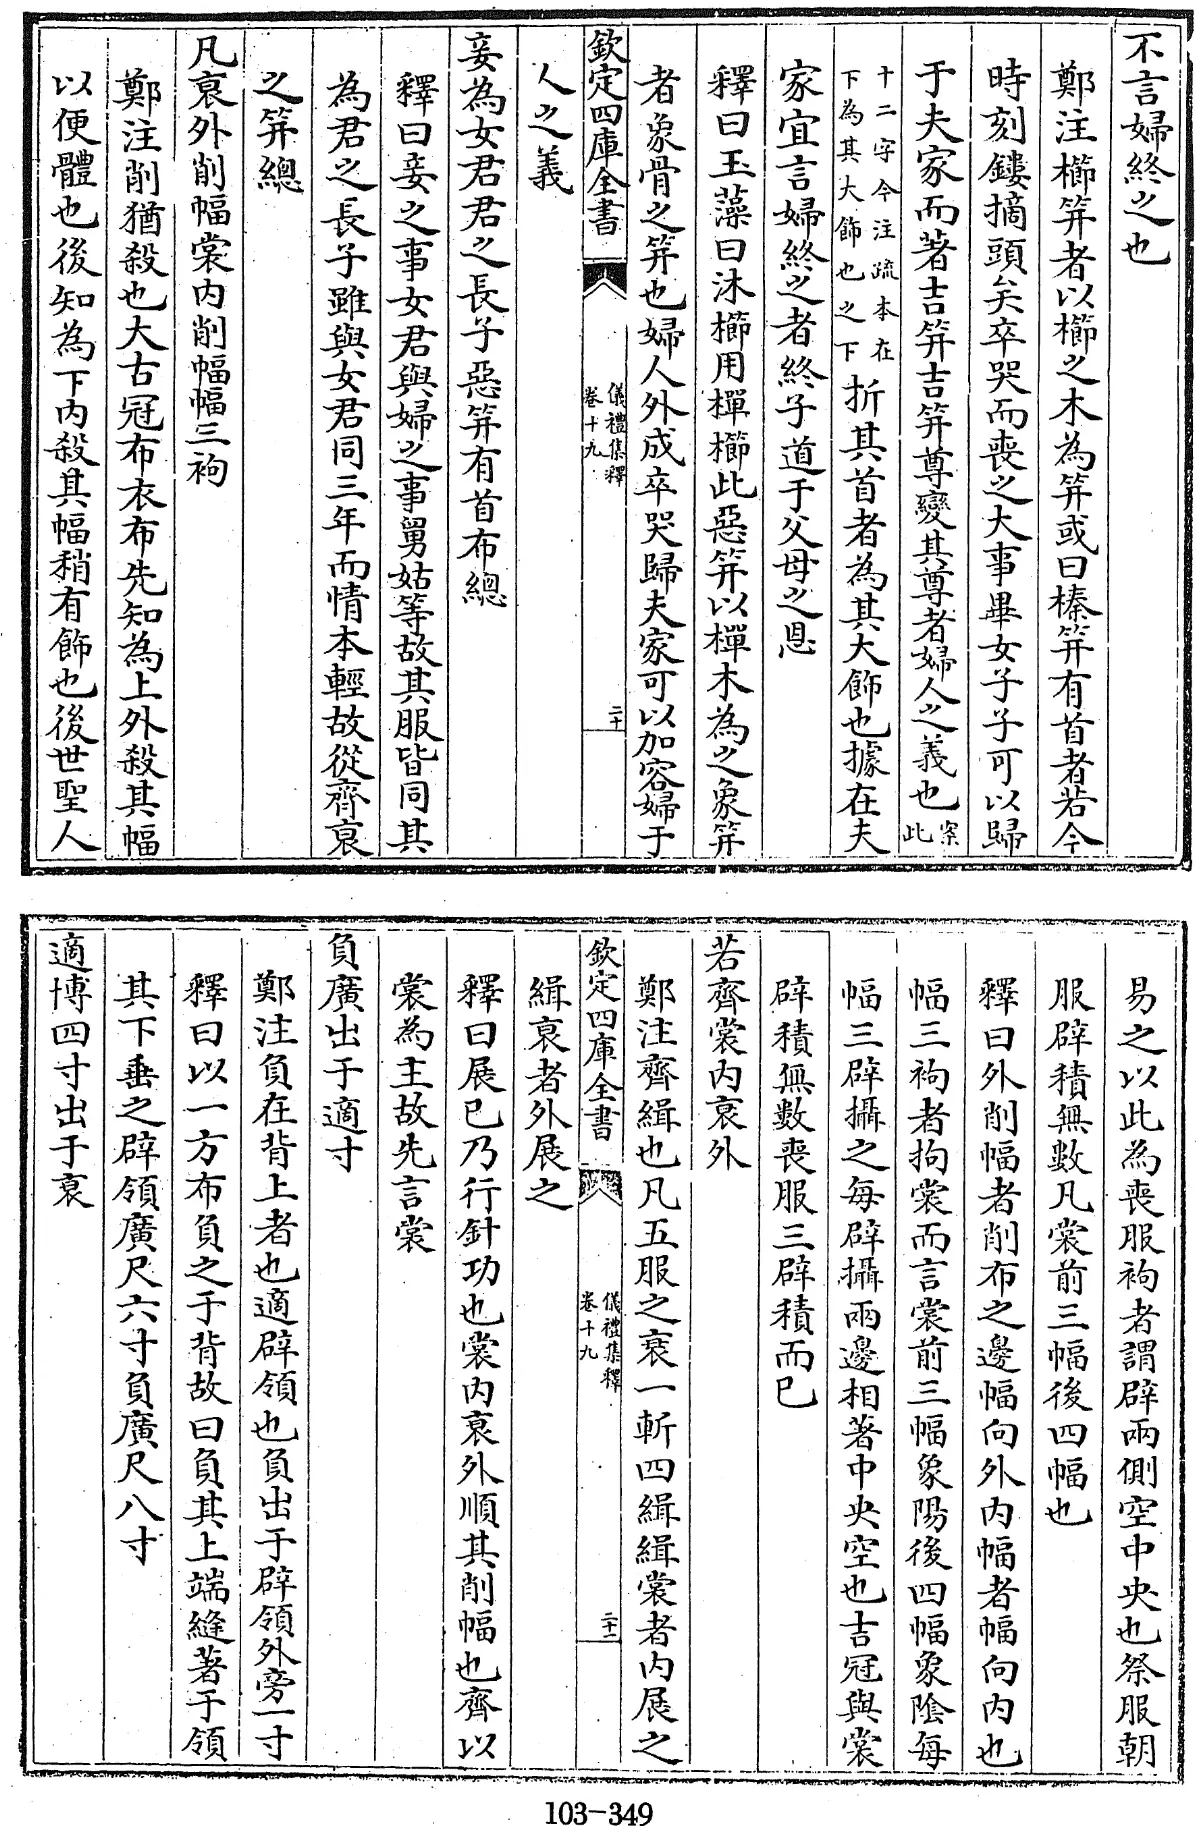 不言婦終之也
鄭注櫛笄者以櫛之木為笄或曰榛笄有首者若今
時刻鏤摘頭矣卒哭而喪之大事畢女子子可以歸
于夫家而著吉笄吉笄尊變其尊者婦人之義也案此
十二字今注疏本在下為其大飾也之下折其首者為其大飾也據在夫
家宜言婦終之者終子道于父母之恩
釋曰玉藻曰沐櫛用樿櫛此惡笄以樿木為之象笄
者象骨之笄也婦人外成卒哭歸夫家可以加容婦于
欽定四庫全書
儀禮集釋
卷十九
二十
人之義
妾為女君君之長子惡笄有首布總
釋曰妾之事女君與婦之事舅姑等故其服皆同其
為君之長子雖與女君同三年而情本輕故從齊衰
之笄總
凡衰外削幅裳內削幅幅三袧
鄭注削猶殺也大古冠布衣布先知為上外殺其幅
以便體也後知為下內殺其幅稍有飾也後世聖人
易之以此為喪服袧者謂辟兩側空中央也祭服朝
服辟積無數凡裳前三幅後四幅也
釋曰外削幅者削布之邊幅向外內幅者幅向內也
幅三袧者拘裳而言裳前三幅象陽後四幅象陰每
幅三辟攝之每辟攝兩邊相著中央空也吉冠與裳
辟積無數喪服三辟積而已
若齊裳內衰外
鄭注齊緝也凡五服之衰一斬四緝緝裳者內展之
欽定四庫全書
儀禮集釋
卷十九
二十一
緝衰者外展之
釋曰展已乃行針功也裳內衰外順其削幅也齊以
裳為主故先言裳
負廣出于適寸
鄭注負在背上者也適辟領也負出于辟領外旁一寸
釋曰以一方布負之于背故曰負其上端縫著于領
其下垂之辟領廣尺六寸負廣尺八寸
適博四寸出于衰
103-349